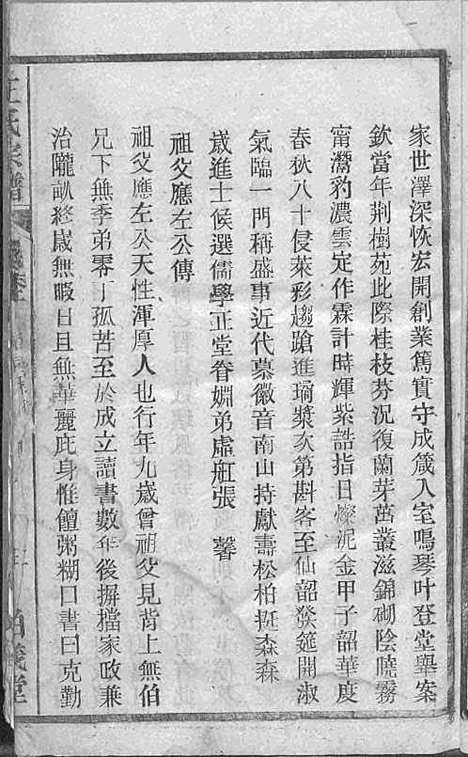 家世澤深恢宏開創業篤實守成箴入室鳴琴叶登堂舉案
欽當年荆樹苑此際桂枝芬況復蘭芽茁叢滋錦砌陰曉霧
甯濳豹濃雲定作霖計時輝紫誥指日燦泥金甲子韶華度
春秋八十侵萊彩趨蹌進瑜漿次第斟客至仙韶發筵開淑
氣臨一門稱盛事近代慕徽音南山持獻壽松柏挺森森
歲進士候選儒學正堂眷婣弟虛舡張　馨
祖父應左公傳
祖父應左公天性渾厚人也行年九歲曾祖父見背上無伯
兄下無季弟零丁孤苦至於成立讀書數年後摒擋家政兼
治隴畝終歲無暇日且無華麗庇身惟饘粥糊口書曰克勤
王氏宗譜